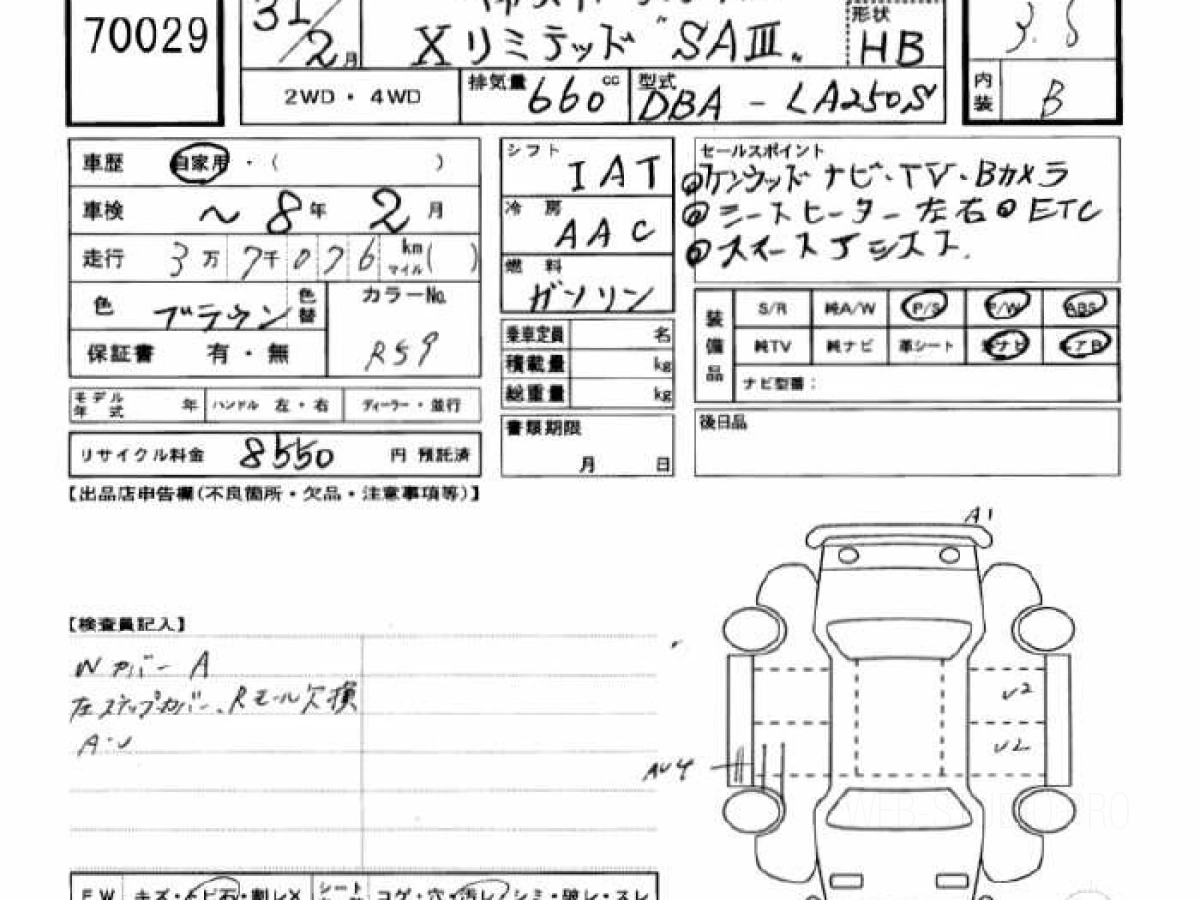 70029
31/2月
Xリミテッド"SAⅢ"
形状
HB
3.5
2WD・4WD
排気量 660 cc
型式 DBA-LA250S
内装 B
車歴 自家用・( )
車検 ~8年2月
走行 3万7千076km マイル( )
色 ブラウン 色替
カラーNo. R59
保証書 有・無
モデル年式 年 ハンドル 左・右 ディーラー・並行
リサイクル料金 8550 円 預託済
シフト IAT
冷房 AAC
燃料 ガソリン
乗車定員 名
積載量 kg
総重量 kg
書類期限
月 日
セールスポイント
ケンウッド ナビ・TV・Bカメラ
シートヒーター左右 ETC
装備品
S/R 純A/W P/S P/W ABS
純TV 純ナビ 革シート ナビ エアB
ナビ型番:
後日品
【出品店申告欄(不良箇所・欠品・注意事項等)】
A1
【検査員記入】
WカバーA
左ステップカバー、Rモール欠損
A・U
U2
U2
AU4
WEB-S PRO
FW キズ・トビ石・割レX シート コゲ・穴・汚レ・シミ・破レ・スレ